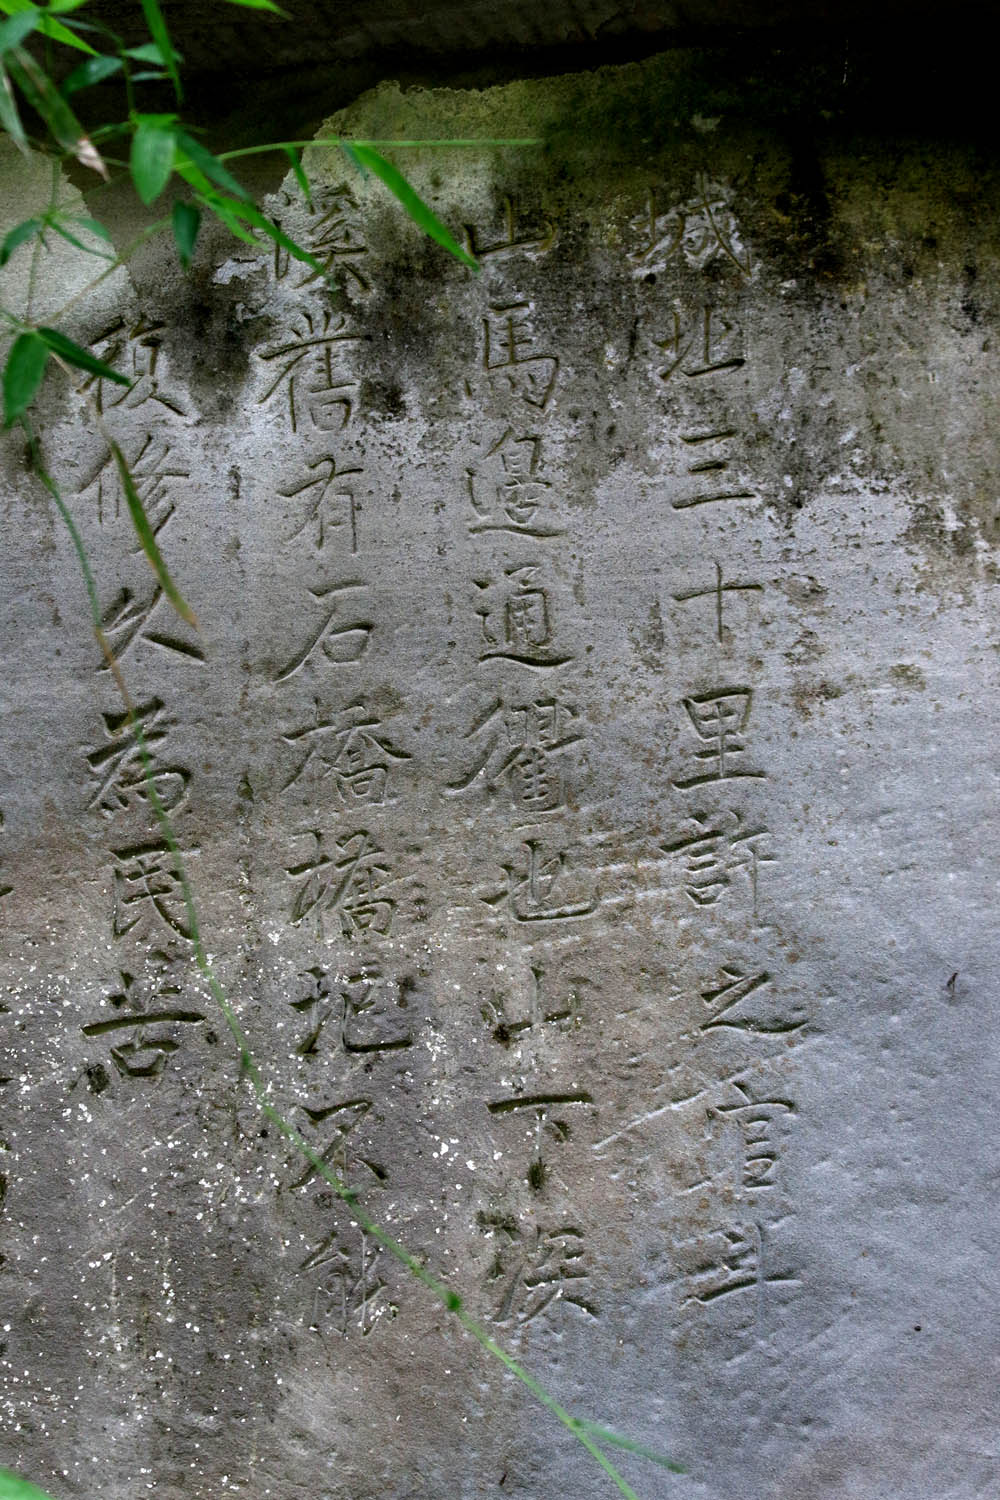 城北三十里許之官斗
山馬邉通衢也山下深
溪舊有石橋橋圮不能
復修久為民苦